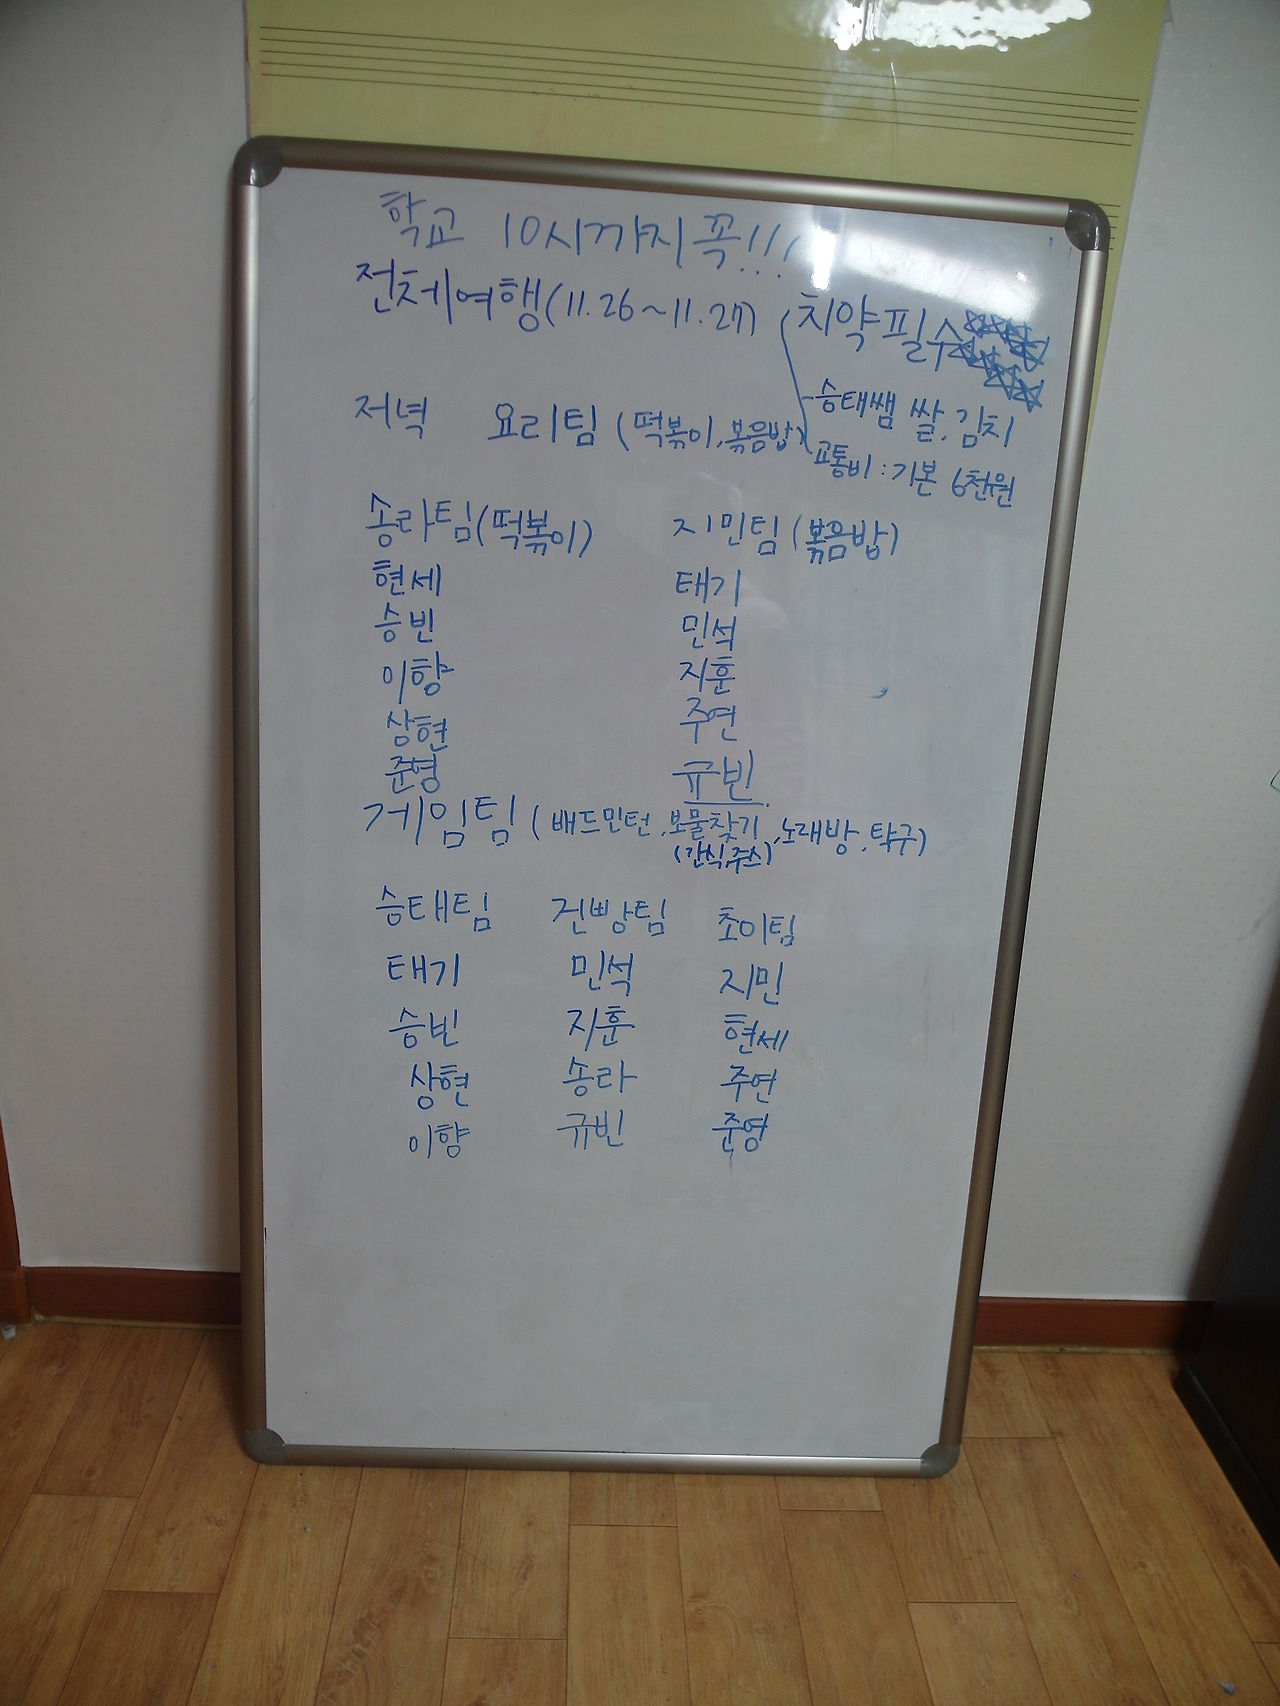 학교 10시까지 꼭!!!
전체여행(11.26~11.27) 치약필수
-승태쌤 쌀, 김치
저녁 요리팀 (떡볶이, 볶음밥)
교통비 : 기본 6천원
송라팀(떡볶이) 지민팀 (볶음밥)
현세 태기
승빈 민석
이향 지훈
상현 주연
준영 규빈
게임팀 (배드민턴, 보물찾기, 노래방, 탁구)
(간식,주스)
승태팀 건빵팀 초이팀
태기 민석 지민
승빈 지훈 현세
상현 송라 주연
이향 규빈 준영